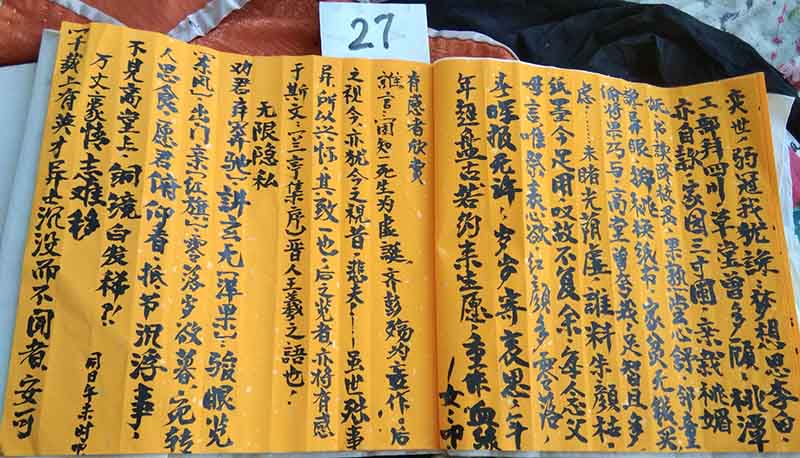 27
奕世・弱冠我犹诛・梦想思李白・
工部拜四川草室曾多顾・桃潭
亦自歌・家园三寸圃・亲栽桃媚
书读暇・果熟尝心舒・邻童
诡异眼・锦桃换纸币・家贫无钱买
偷将果巧与・高堂曾夸我足智且多
虑……未睹光荫虚・谁料朱颜枯・
纸墨今足用・叹故不复余・年念父
母言唯祭表心欲・红颜多零落・
春晖报无许・岁岁寄哀思・年
年盘古・若约来生愿・重作血缘
一女・叩
有感者欣赏
谁言・固知一死生为虚诞・齐彭殇为妄作・后
之视今・亦犹今之视昔・悲夫！——虽世殊事
异・所以兴怀・其致一也・后之览者・亦将有感
于斯文・《兰亭集序》晋人王羲之语也・
无限隐私
劝君弃奔驰・讲玄尤〖洋果〗骏眼览
〖东风〗出门亲〖红旗〗零落岁欲暮・宛转
人思食・愿君俯仰看・抵节沉浮事・
不见高堂上・铜镜白发梯?!
万丈豪情志难移
同日午未时叩
千载上有英才异士沉没而不闻者・安可